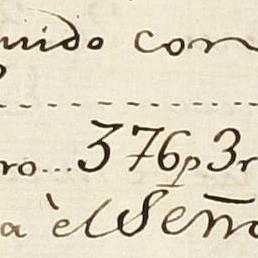 uido con
ro... 376p 3r
a èl Seño